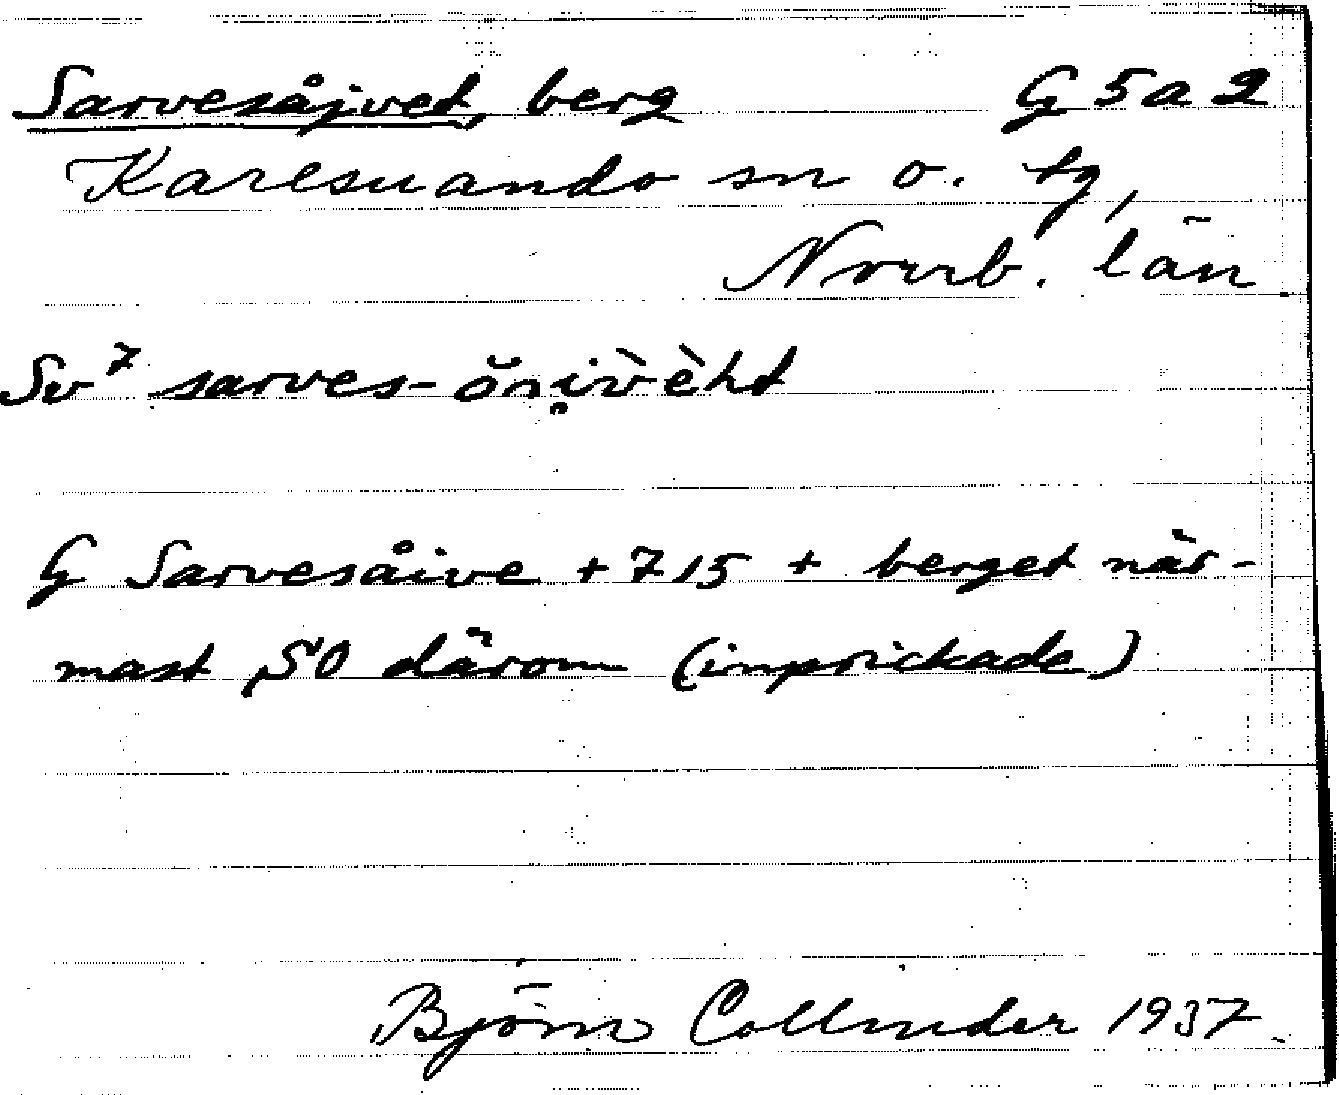 Sarvesåjvet, berg G 5 a 2
Karesuando sn o. tg,
Norrb. län
Sv 7 sarves-
G Sarvesåive + 715 + berget när-
mast SO därom (inprickade)
Björn Collinder 1937